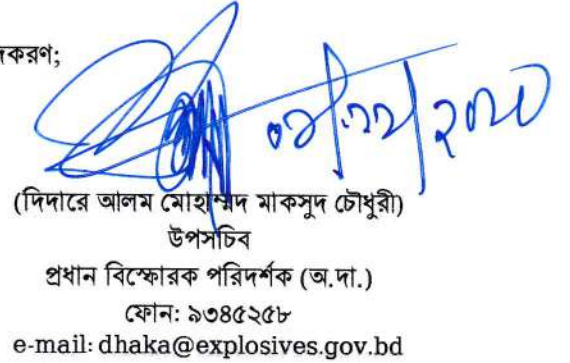 করণ;
(দিদারে আলম মোহাম্মদ মাকসুদ চৌধুরী)
উপসচিব
প্রধান বিস্ফোরক পরিদর্শক (অ.দা.)
ফোন: ৯৩৪৫২৫৮
e-mail: dhaka@explosives.gov.bd